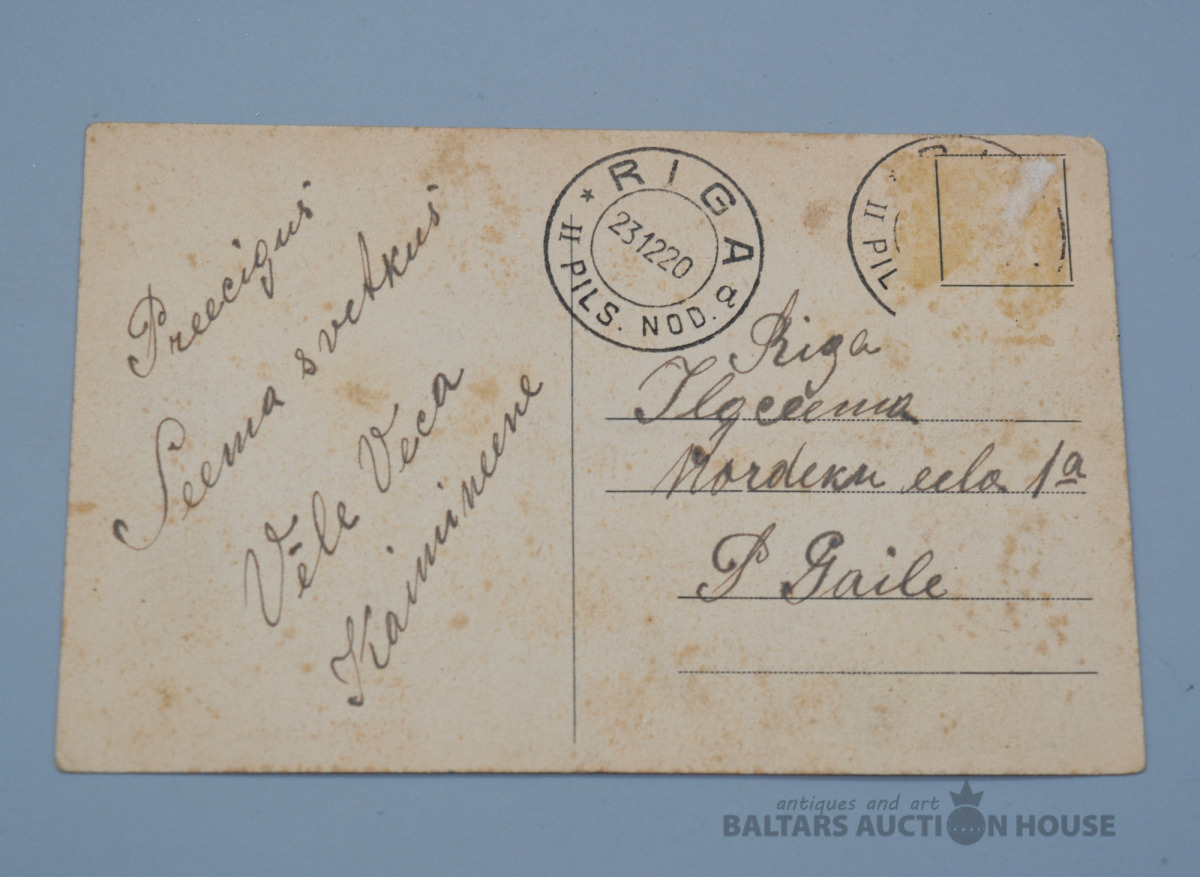 Preecigus
Seema svetkus
Vēle Veca
Kaimineene
* RIGA a
23 12 20
II PILS. NOD.
II PIL
Riga
Ilgcēema
Nordeku eela 1a
P Gaile
antiques and art
BALTARS AUCTION HOUSE